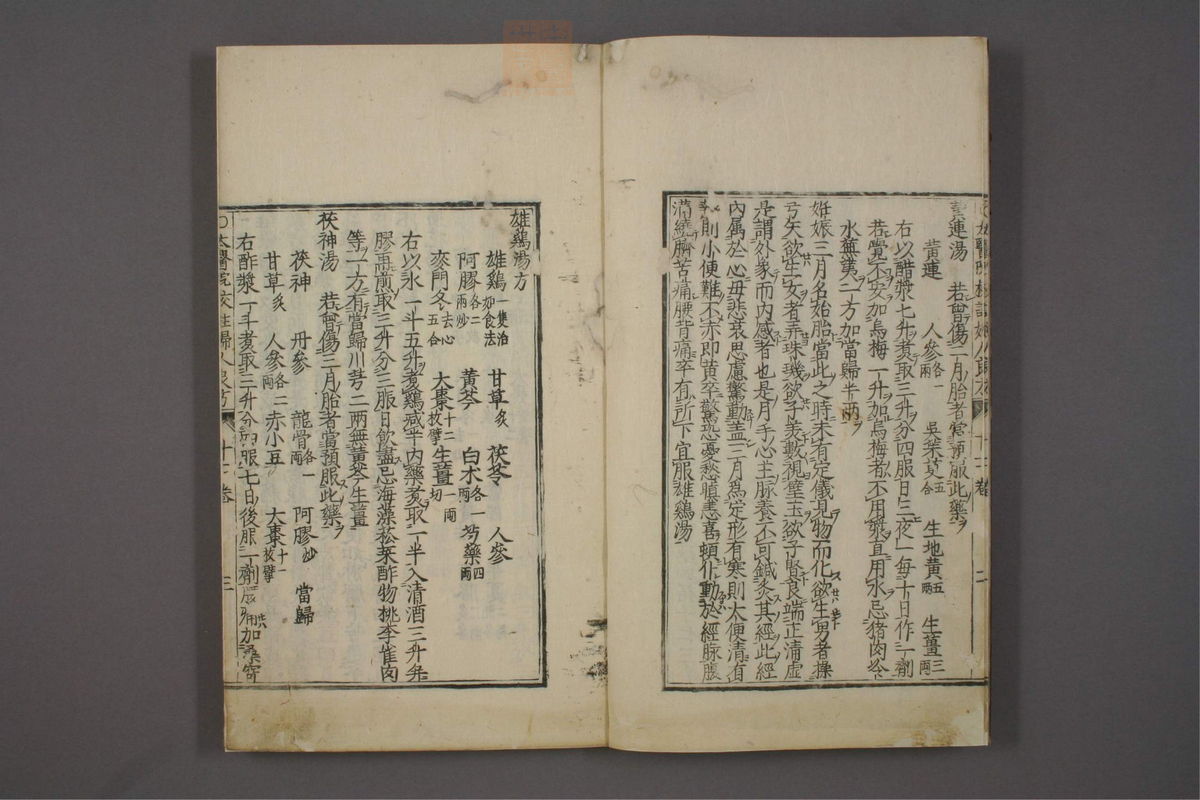 黃連湯 若曾傷二月胎者當預服此藥ヲ
黃連 人參各一兩 吳茱萸五合 生地黃五兩 生薑三兩
右以醋漿七升煮取三升分四服日三夜一每十日作一劑
若覺不安加烏梅一升加烏梅者不用漿直用水忌猪肉冷
水蕪荑一方加當歸半兩
妊娠三月名始胎當此之時未有定儀見物而化欲生男者操
弓矢欲生女者弄珠璣欲子美數視璧玉欲子賢良端正清虛
是謂外象而內感者也是月手心主脉養不可鍼灸其經此經
內属於心毋悲哀思慮驚動盖三月爲定形有寒則大便清有
熱則小便難不赤即黃卒驚恐憂愁瞋恚喜頓仆動於經脉腹
滿繞臍苦痛腰背痛卒有所下宜服雄鷄湯
雄鷄湯方
雄鷄一隻治如食法 甘草炙 茯苓 人參
阿膠各二兩炒 黃芩 白术各一兩 芍藥四兩
麥門冬去心五合 大棗十二枚擘 生薑一兩切
右以水一斗五升煮鷄减半內藥煮取一半入清酒三升并
膠再煎取三升分三服日飲盡忌海藻菘菜酢物桃李雀肉
等一方有當歸川芎二兩無黃芩生薑
茯神湯 若曾傷三月胎者當預服此藥ヲ
茯神 丹參 龍骨各一兩 阿膠炒 當歸
甘草炙 人參各二兩 赤小豆 大棗十一枚擘
右酢漿一斗煮取三升分四服七日後服一劑腰痛加桑寄
〇太醫院校註婦人良方 十二卷 三